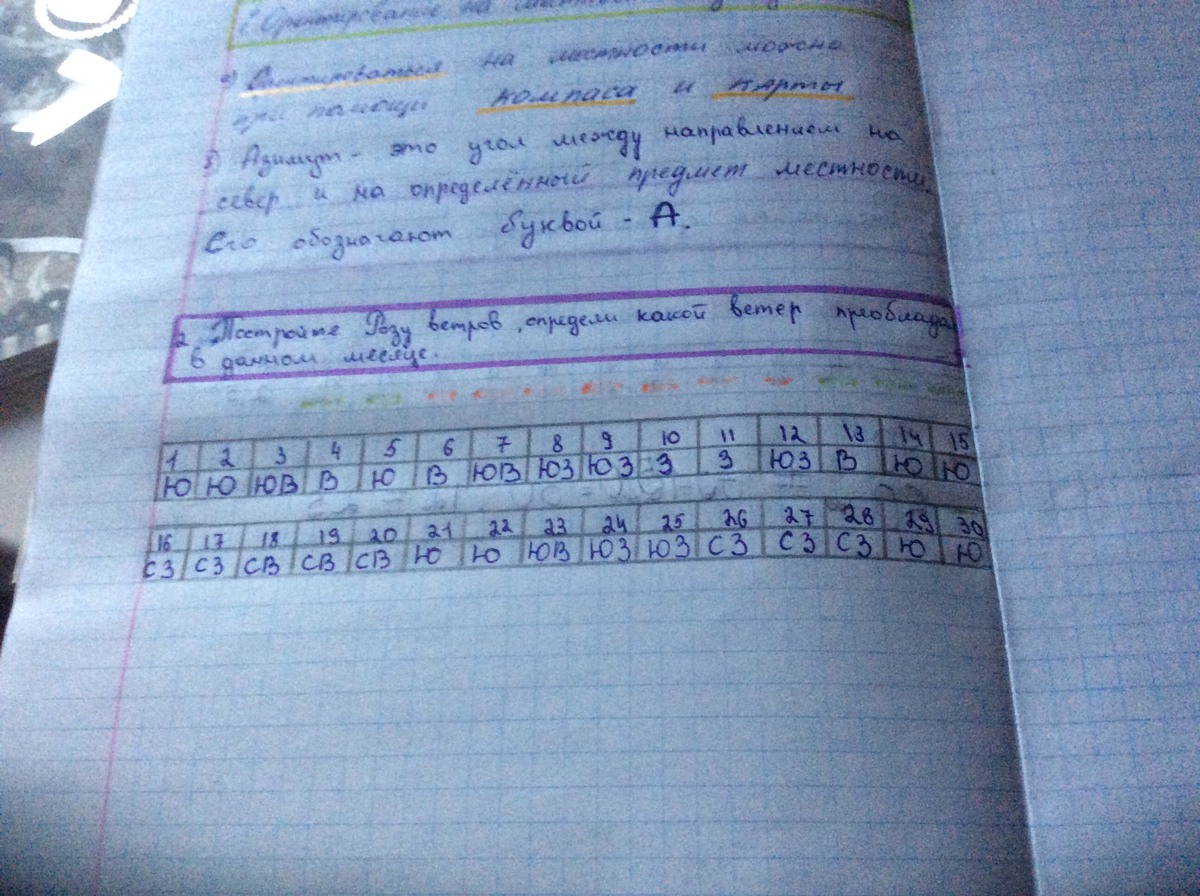 1. Ориентирование на
2) Ориентироваться на местности можно
при помощи компаса и карты
3) Азимут - это угол между направлением на
север и на определённый предмет местности.
Его обозначают буквой - А.
2. Постройте Розу ветров, определи какой ветер преобладал
в данном месяце.
1 2 3 4 5 6 7 8 9 10 11 12 13 14 15
Ю Ю ЮВ В Ю В ЮВ ЮЗ ЮЗ З З ЮЗ В Ю Ю
16 17 18 19 20 21 22 23 24 25 26 27 28 29 30
СЗ СЗ СВ СВ СВ Ю Ю ЮВ ЮЗ ЮЗ СЗ СЗ СЗ Ю Ю